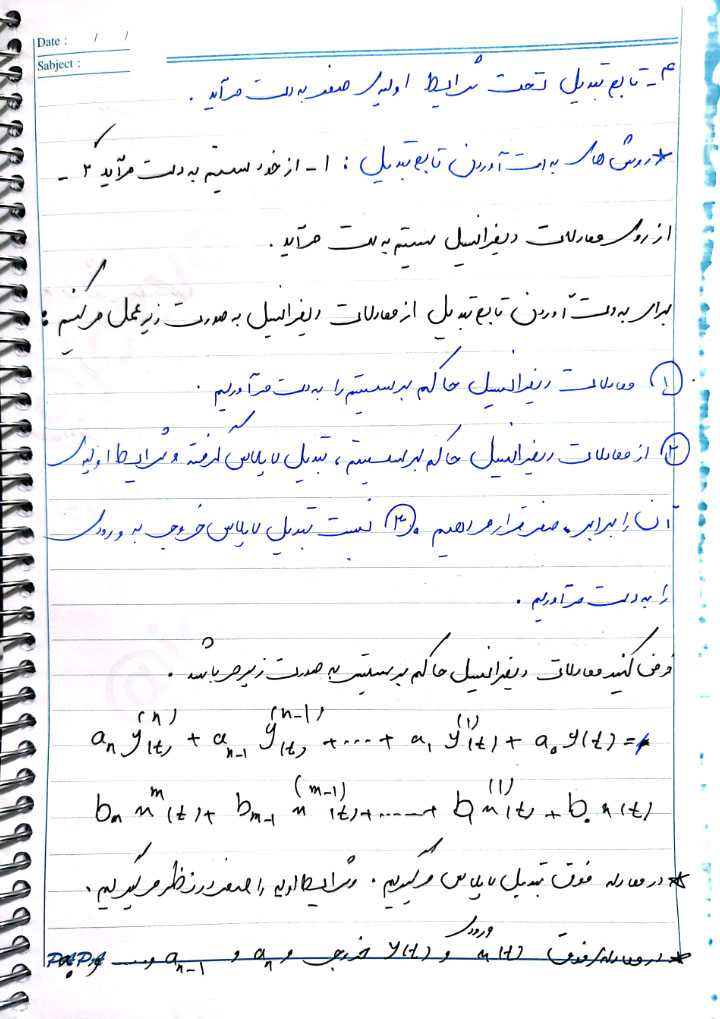 Date : / /
Sabject :
۴_ تابع تبدیل تحت شرایط اولیه‌ی صفر بدست می‌آید .
* روش های بدست آوردن تابع تبدیل : ۱_ از خود سیستم به دست می‌آید ۲_
از روی معادلات دیفرانسیل سیستم به دست می‌آید .
برای به دست آوردن تابع تبدیل از معادلات دیفرانسیل به صورت زیر عمل می‌کنیم :
① معادلات دیفرانسیل حاکم بر سیستم را به دست می‌آوریم .
② از معادلات دیفرانسیل حاکم بر سیستم ، تبدیل لاپلاس گرفته و شرایط اولیه‌ی
آن را برابر صفر قرار می‌دهیم . ③ نسبت تبدیل لاپلاس خروجی به ورودی
را به دست می‌آوریم .
فرض کنید معادلات دیفرانسیل حاکم بر سیستم به صورت زیر می‌باشد .
aₙ y⁽ⁿ⁾(t) + aₙ₋₁ y⁽ⁿ⁻¹⁾(t) + ... + a₁ y⁽¹⁾(t) + a₀ y(t) =
bₘ xᵐ(t) + bₘ₋₁ x⁽ᵐ⁻¹⁾(t) + ...... + b₁ x⁽¹⁾(t) + b₀ x(t)
* در معادله فوق تبدیل لاپلاس می‌گیریم . و شرایط اولیه را صفر در نظر می‌گیریم .
* در معادله فوق x(t) ورودی و y(t) خروجی و aₙ و aₙ₋₁ و .... و